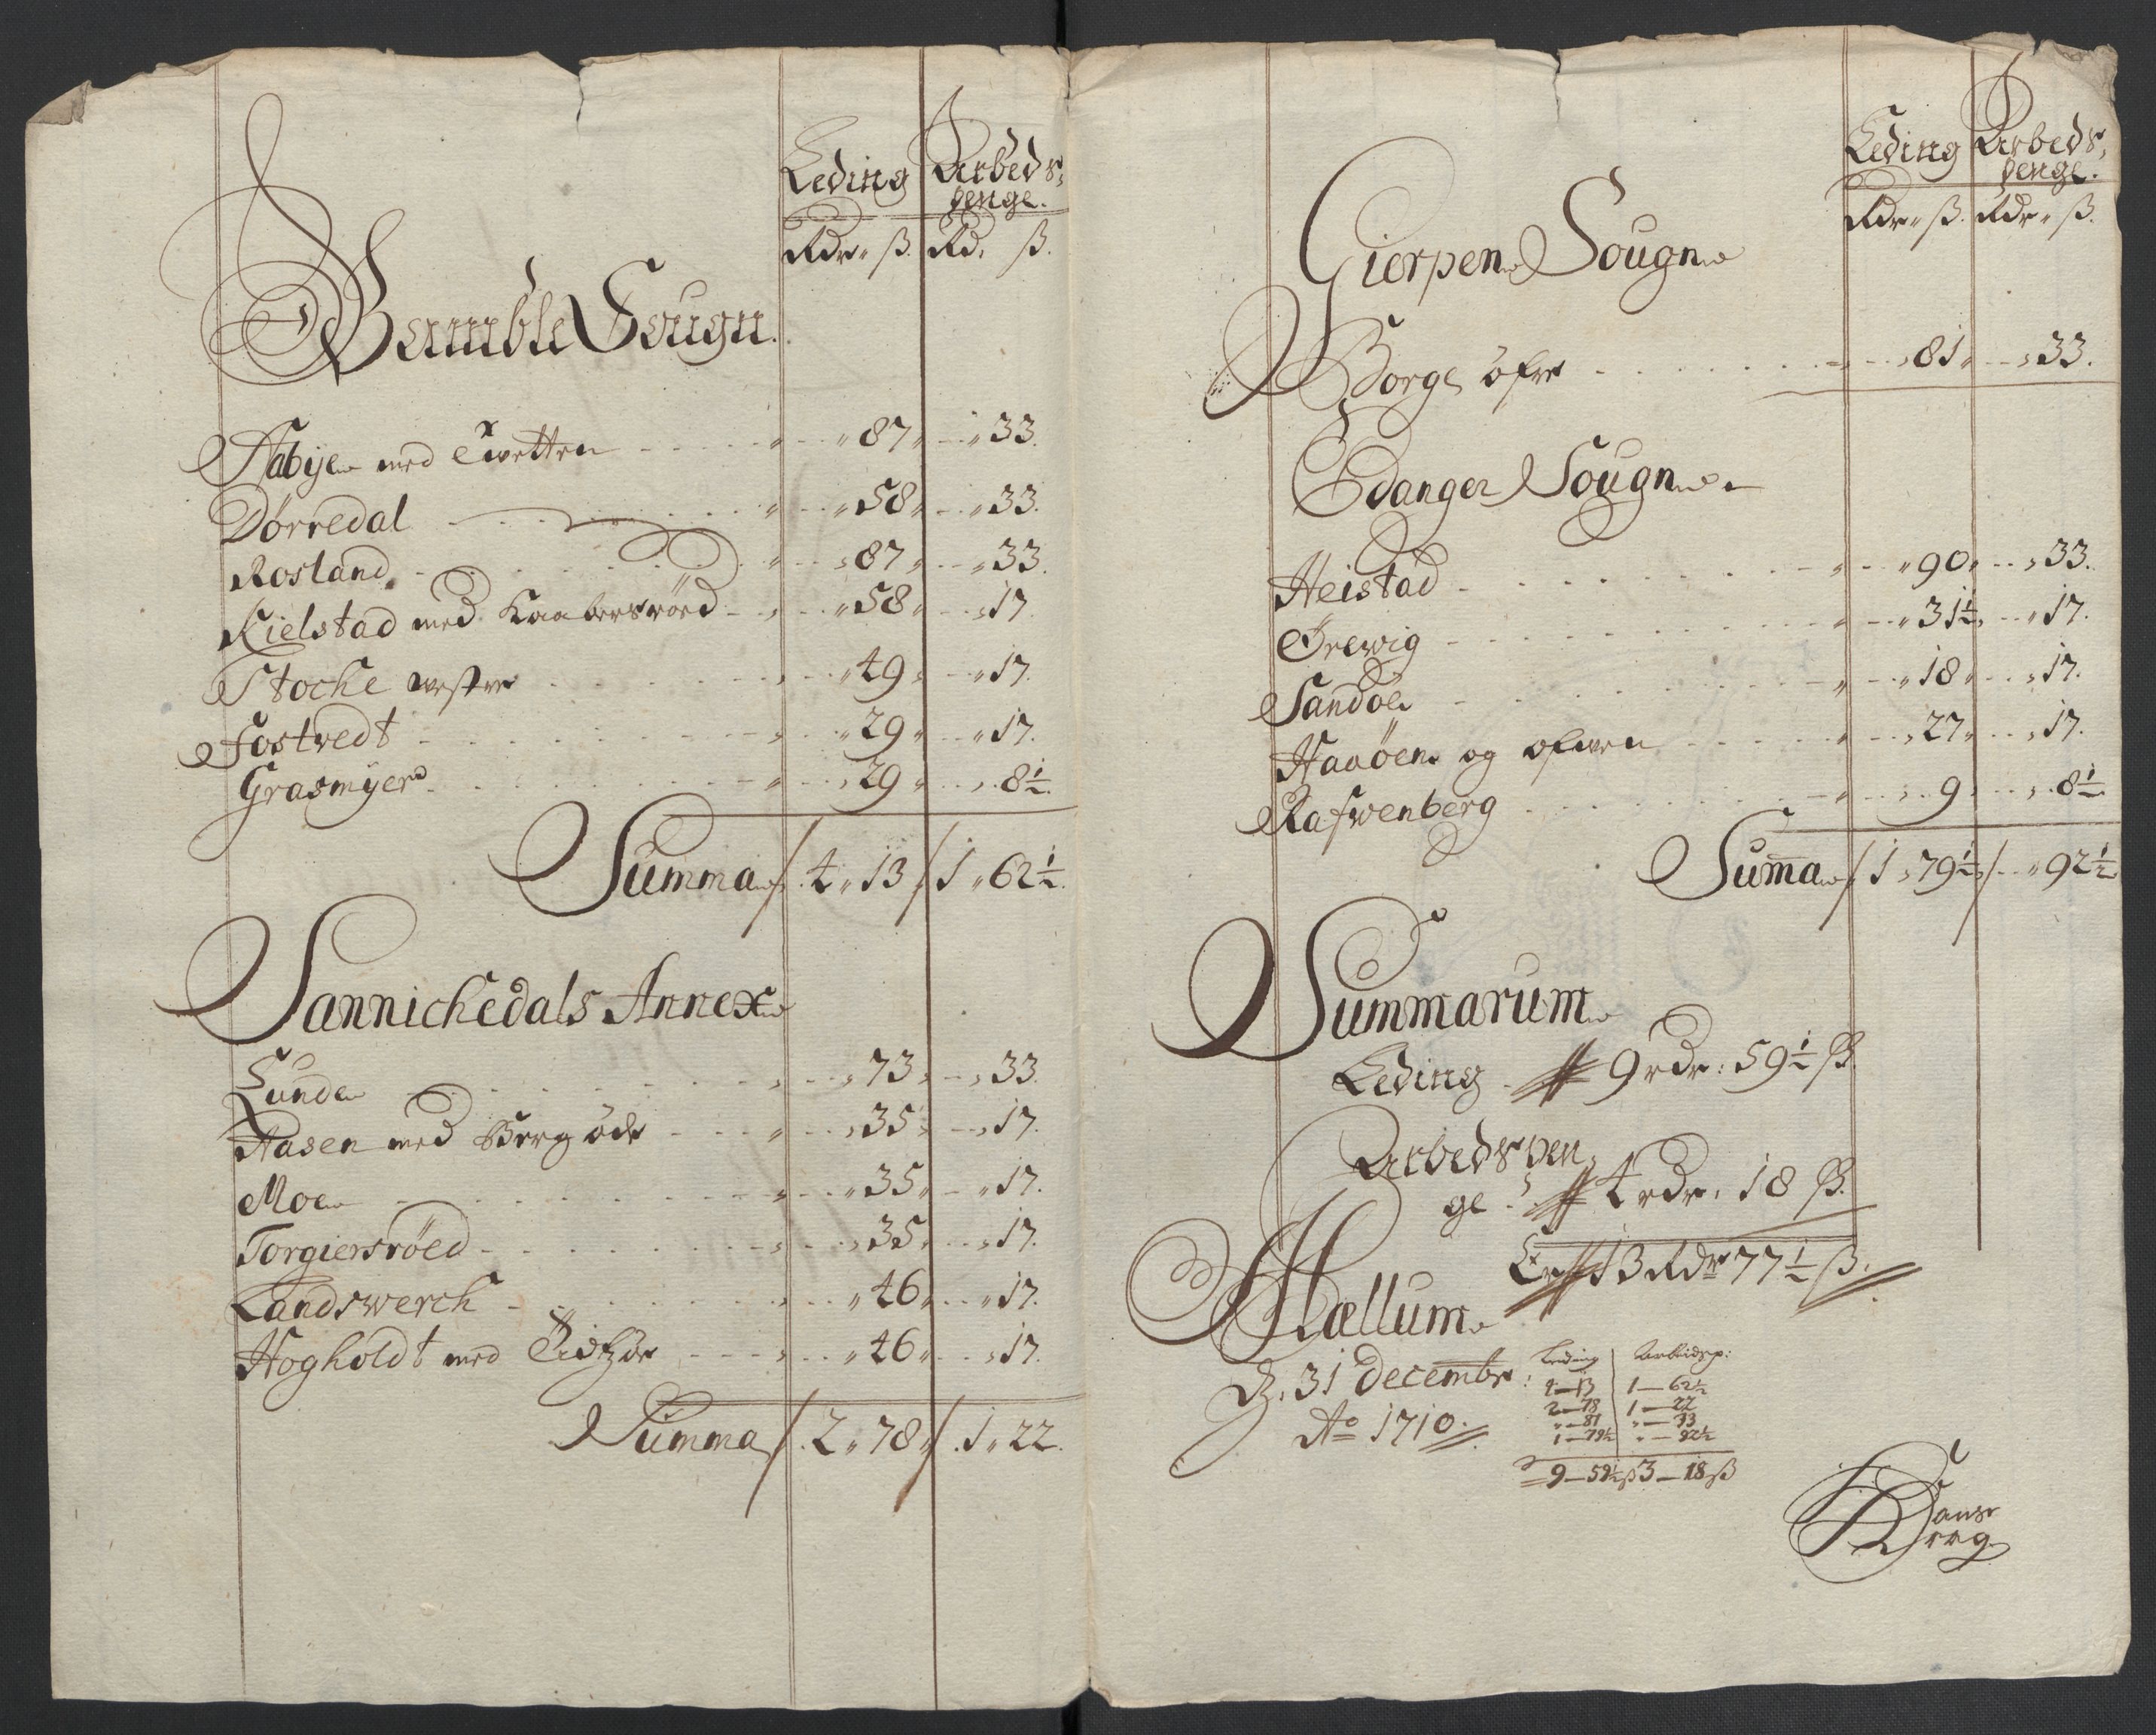 Leding Arbeds,
penge.
Rdr. ß. Rd. ß.
Bamble Sougn.
Aabye med Twetten 87 33.
Dørredal 58 33.
Rosland 87 33.
Kielstad med Kaabersröed 58 17.
Stocke westre 49 17.
Fostvedt 29 17.
Grasmyer 29 8½.
Summa 4 13 1 62½.
Sannichedals Annex
Lunde 73 33.
Aasen med Berg öde 35 17.
Moe 35 17.
Torgiersröed 35 17.
Landswerch 46 17.
Hogholdt med 46 17.
Summa 2 78 1 22.
Leding Arbeds,
penge.
Rdr. ß. Rdr. ß.
Gierpen Sougn
Borge öfre 81 33.
Edanger Sougn
Heistad 90 33.
Örewig 31½ 17.
Sandöe 18 17.
Haaöen og ofwen 27 17.
Rafwenberg 9 8½
Suma 1 79½ 92½
Summarum
Leding 9 rdr: 59½ ß.
Arbedspen,
ge 4 rdr. 18 ß.
Er 13 Rdr 77½ ß.
Hællum
D. 31 Decembr:
Ao 1710.
Leding Arbeidsp:
4—13 1—62½
2—78 1—22
"—81 "—33
1—79½ "—92½
9—59½ß 3—18ß
Hans
Krag